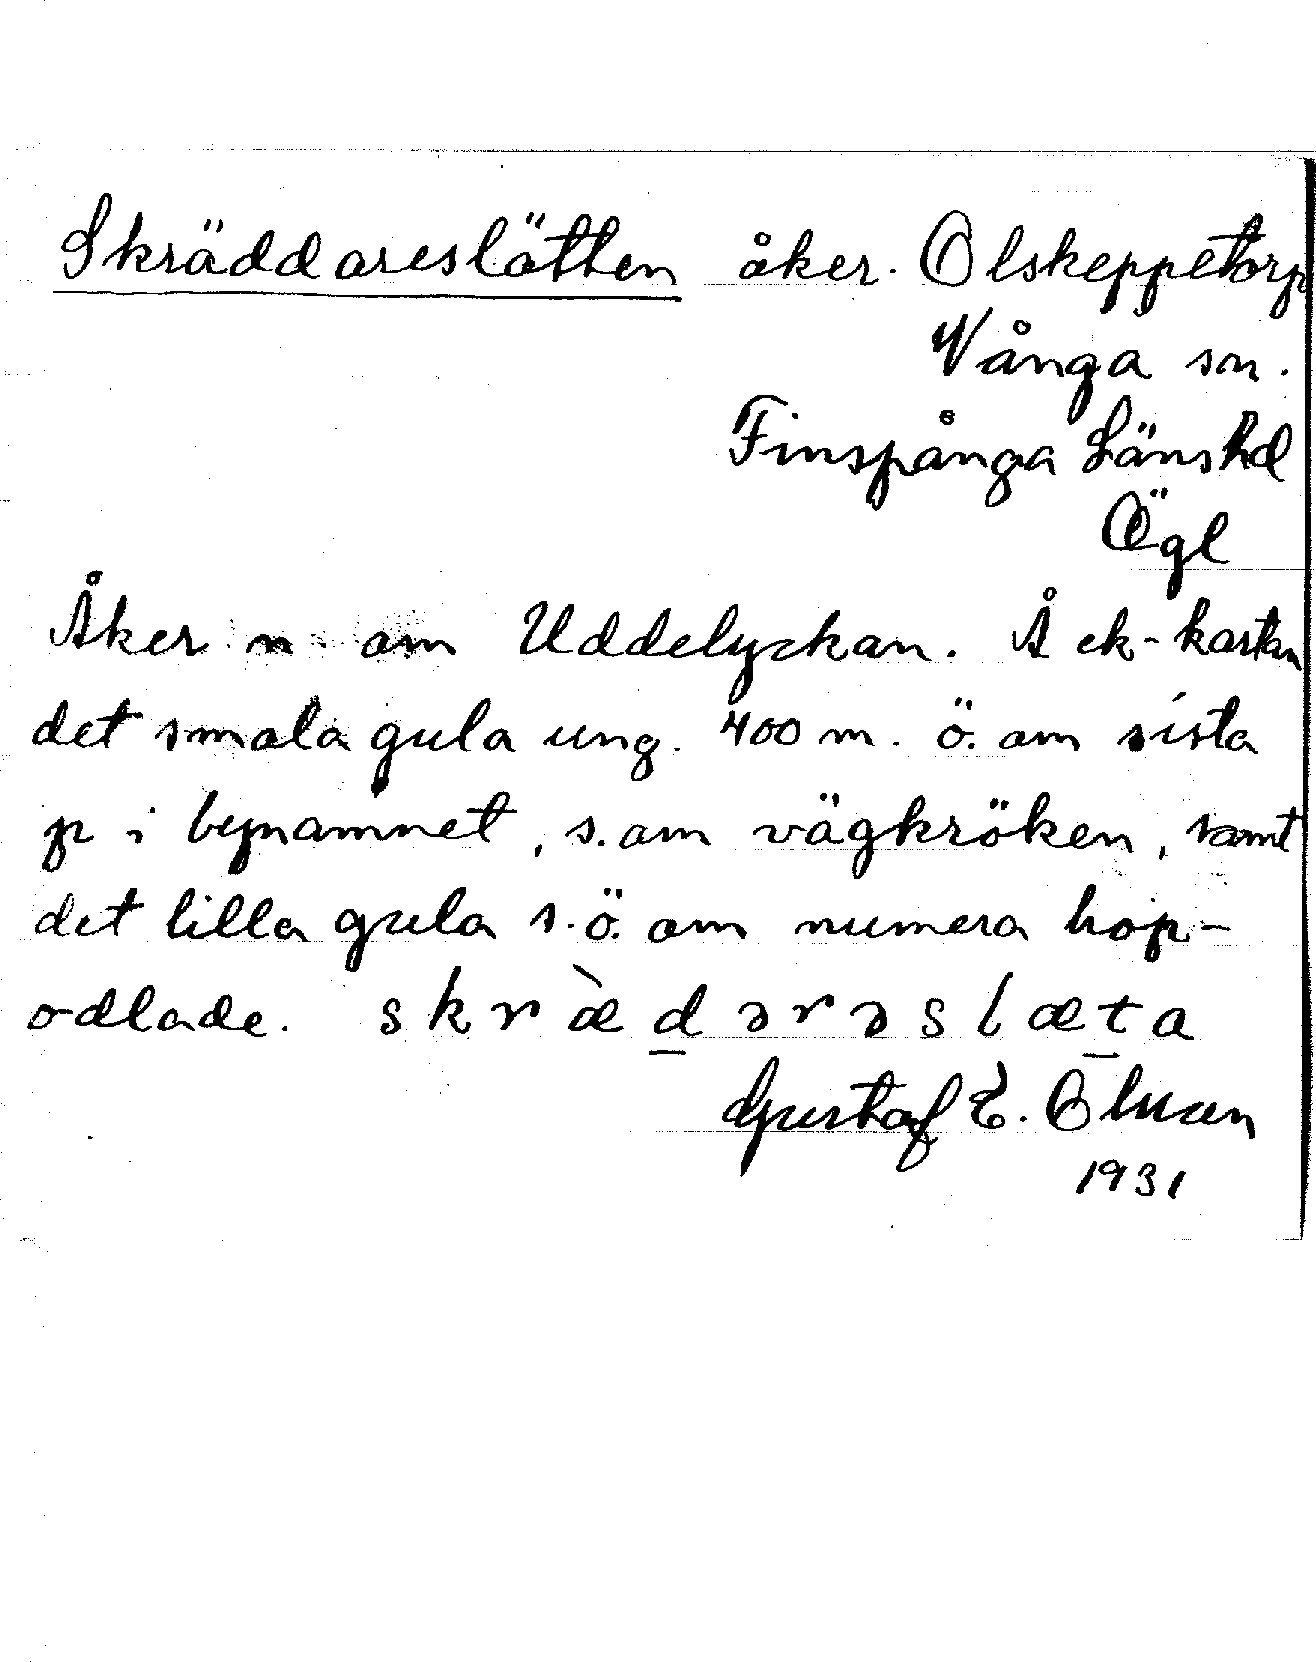 Skräddareslätten åker. Olskeppetorp
Vånga sn.
Finspånga Länshd
Ögl
Åker n om Uddelyckan. Å ek-kartan
det smala gula ung. 400 m. ö. om sista
p i bynamnet, s. om vägkröken, samt
det lilla gula s.ö. om numera hop-
odlade. skræ̀dərəslæta
Gustaf E.
1931